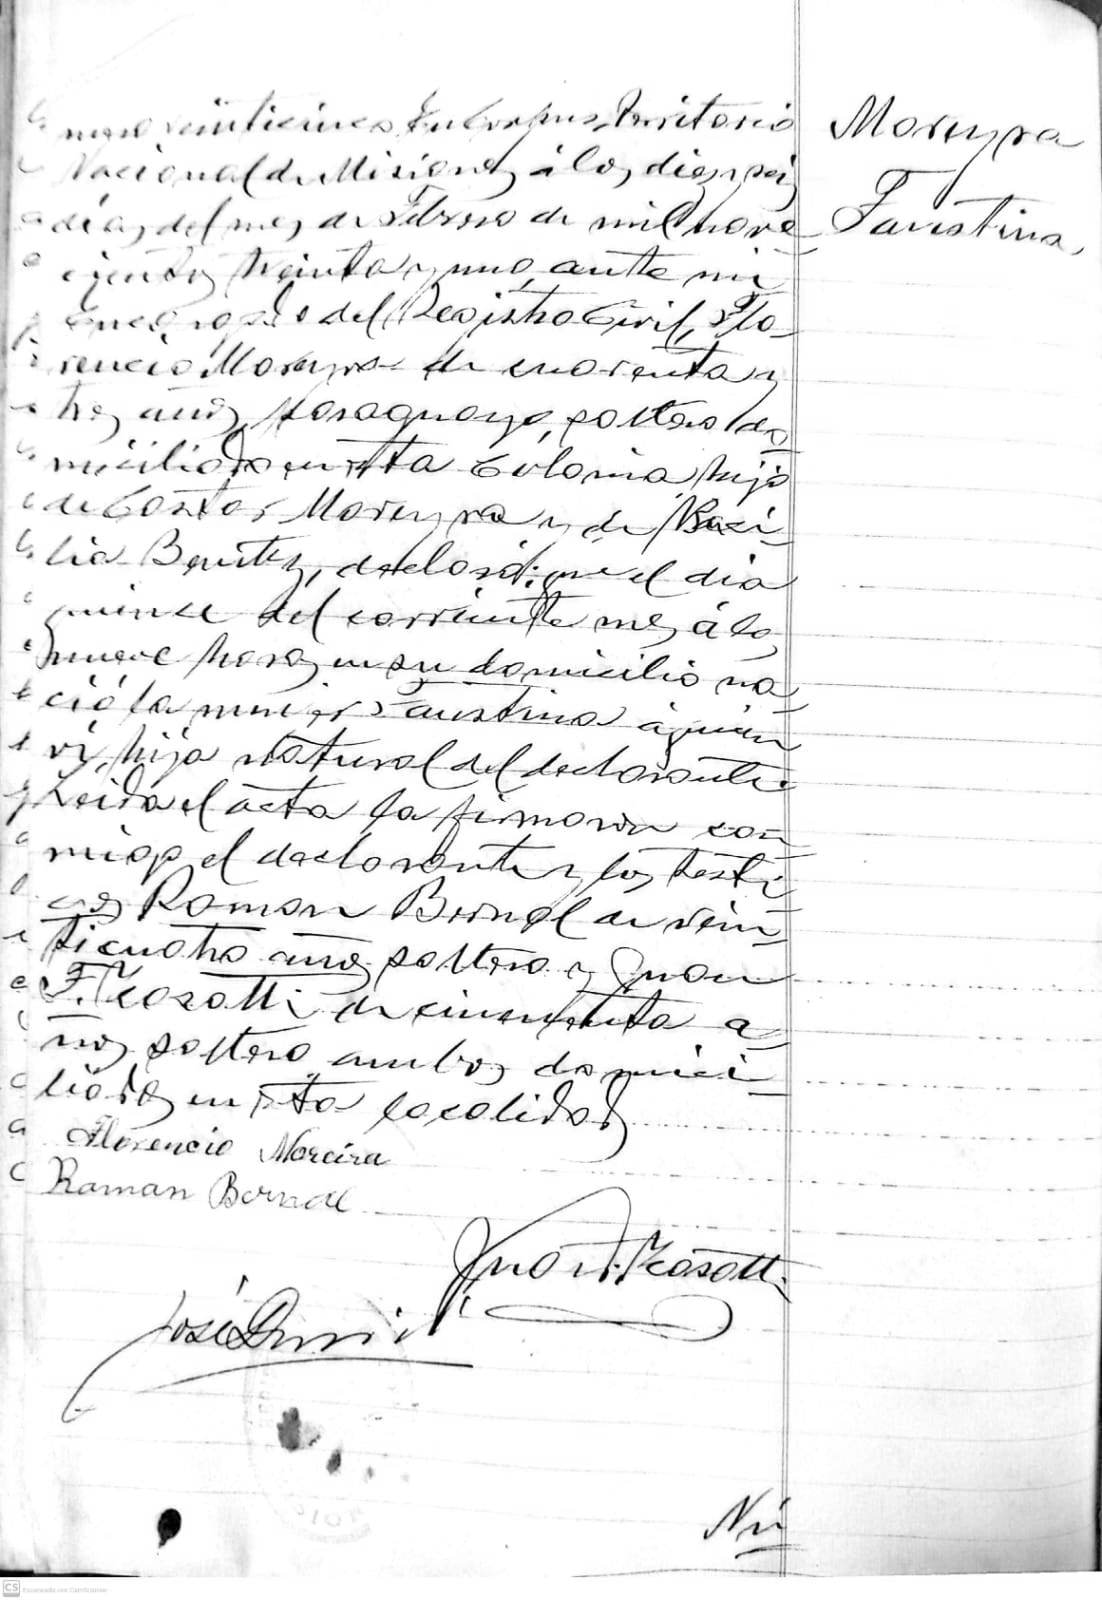 mero veinticinco En Corpus, Territorio
Nacional de Misiones á los diez y seis
dias del mes de Febrero de mil nove
cientos treinta y uno, ante mi
Encargado del Registro Civil, Flo-
rencio Moreyra de cuarenta y
tres años, paraguayo, soltero do
miciliado en esta Colonia, hijo
de Moreyra y de
Benitez, declaró: que el dia
quince del corriente mes á las
nueve horas en su domicilio na
ció la mujer Faustina á quien
vi, hija natural del declarante.
Leida el acta la firmaron con
migo el declarante y los testi
gos Roman Bernal de vein
ticuatro años soltero y Juan
F. de cincuenta a
ños soltero ambos domici
liados en esta localidad
Florencio Moreira
Roman Bernal
Juan F.
José
Nú
Moreyra
Faustina
CS Escaneado con CamScanner